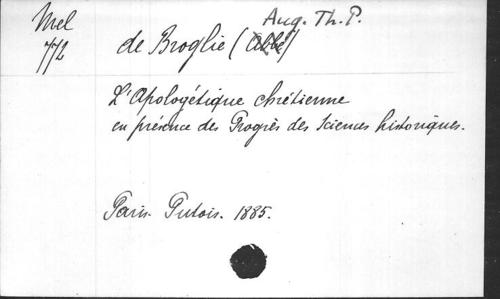 Mel
772
Aug. Th. P.
de Broglie (Abbé)
L'Apologétique chrétienne
en présence des Progrès des Sciences historiques.
Paris. Putois. 1885.